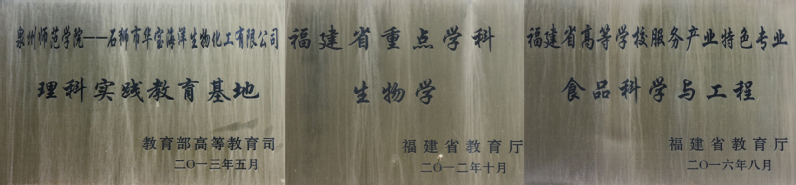 泉州师范学院——石狮市华宝海洋生物化工有限公司
理科实践教育基地
教育部高等教育司
二〇一三年五月
福建省重点学科
生物学
福建省教育厅
二〇一二年十月
福建省高等学校服务产业特色专业
食品科学与工程
福建省教育厅
二〇一六年八月